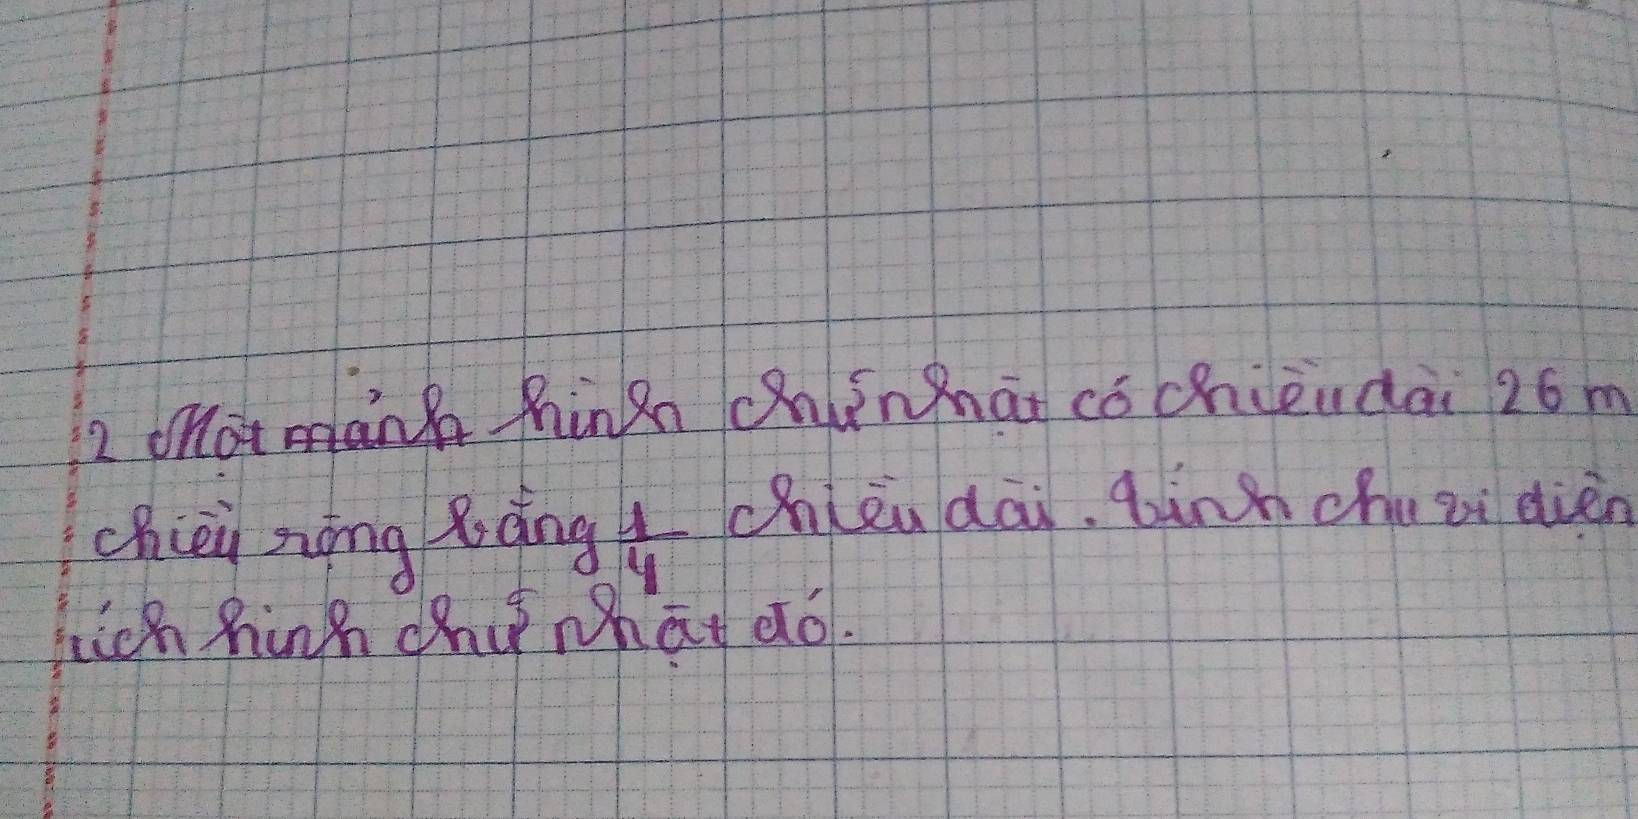 2 Một mảnh hình chữ nhật có chiều dài 26 m
chiều rộng bằng 1/4 chiều dài. Tính chu vi diện
tích hình chữ nhật đó.